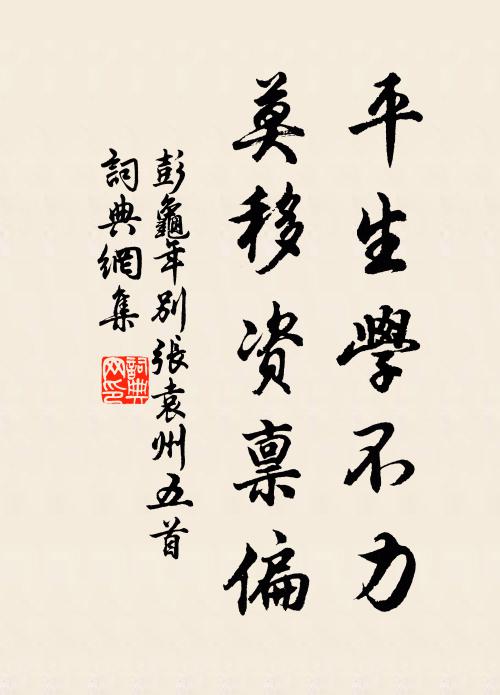 平生學不力
莫移资禀偏
彭龜年別張袁州五首
詞典網集
詞典网印